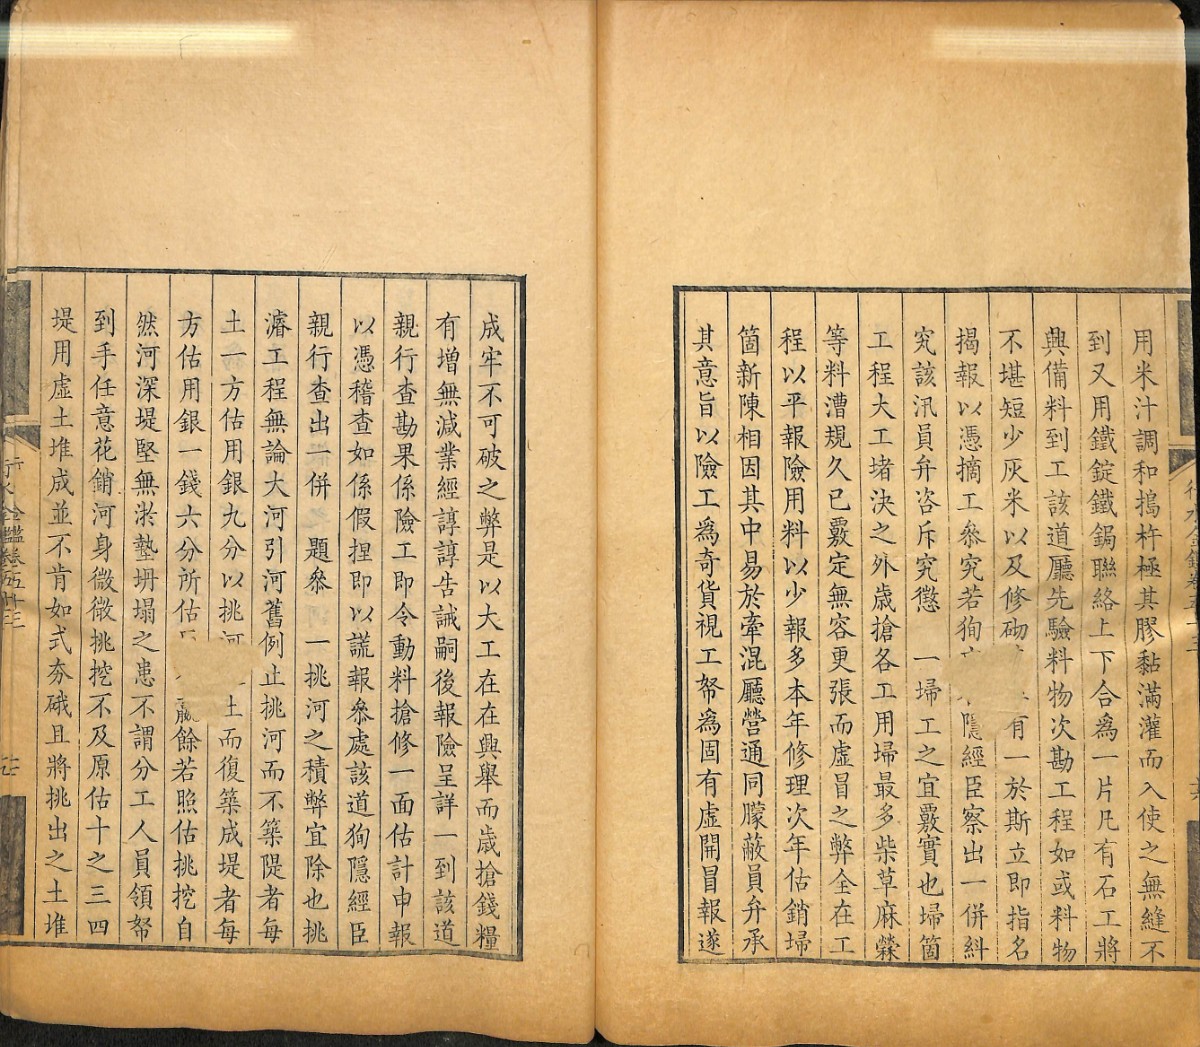 用米汁調和搗杵極其膠黏滿灌而入使之無縫不
到又用鐵錠鐵鋦聯絡上下合為一片凡有石工將
興備料到工該道廳先驗料物次勘工程如或料物
不堪短少灰米以及修砌有一於斯立即指名
揭報以憑摘工叅究若狥隱經臣察出一併糾
究該汛員弁咨斥究懲　一埽工之宜覈實也埽箇
工程大工堵決之外歲搶各工用埽最多柴草麻檾
等料漕規久已覈定無容更張而虛冒之弊全在工
程以平報險用料以少報多本年修理次年估銷埽
箇新陳相因其中易於牽混廳營通同朦蔽員弁承
其意旨以險工為奇貨視工帑為固有虛開冒報遂
成牢不可破之弊是以大工在在興舉而歲搶錢糧
有增無減業經諄諄告誡嗣後報險呈詳一到該道
親行查勘果係險工即令動料搶修一面估計申報
以憑稽查如係假捏即以謊報叅處該道狥隱經臣
親行查出一併題叅　一挑河之積弊宜除也挑
濬工程無論大河引河舊例止挑河而不築隄者每
土一方估用銀九分以挑河土而復築成堤者每
方估用銀一錢六分所估餘若照估挑挖自
然河深堤堅無淤墊坍塌之患不謂分工人員領帑
到手任意花銷河身微微挑挖不及原估十之三四
堤用虛土堆成並不肯如式夯硪且將挑出之土堆
行水金鑑卷五十三